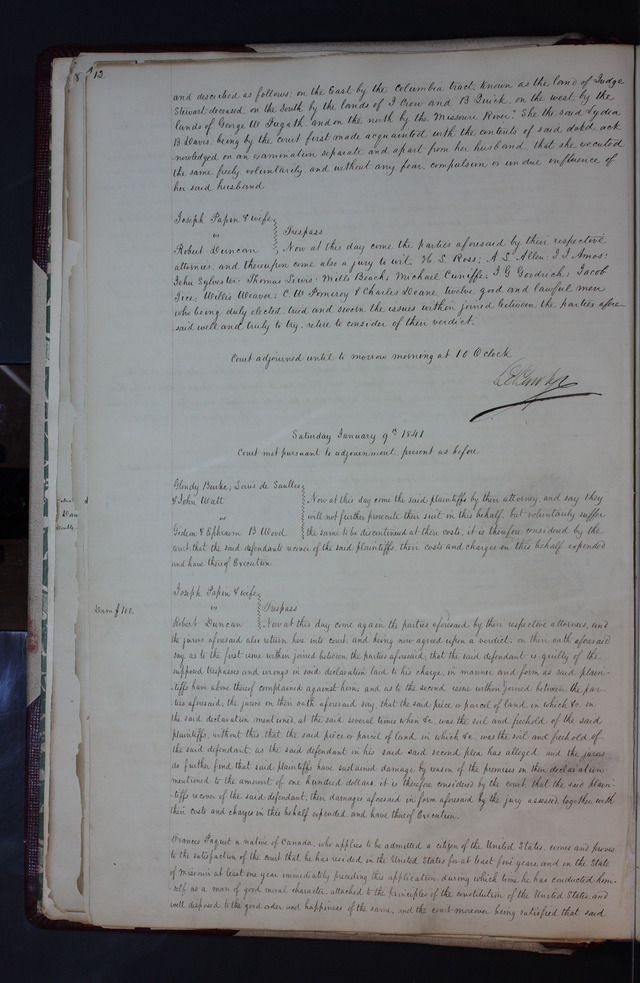 12.
and described as follows: on the East by the Columbia tract known as the land of Judge
Stewart deceased, on the South by the lands of J Crow and B Quick, on the west by the
lands of George W Fugath and on the north by the Missouri River." She the said Lydia
B Davis being by the court first made acquainted with the contents of said deed, ack
nowledged on an examination separate and apart from her husband, that she executed
the same freely, voluntarily, and without any fear, compulsion or undue influence of
her said husband
Joseph Papin & wife
vs Trespass
Robert Duncan Now at this day come the parties aforesaid by their respective
attornies, and thereupon come also a jury to wit, H S Ross; A S Allen; J J Amos;
John Sylvester; Thomas Lewis; Mills Beach; Michael Cuniffe; J G Goodrich; Jacob
Tice; Willis Weaver; C W Pomeroy & Charles Doane twelve good and lawful men
who being duly elected, tried and sworn the issues within joined between the parties afore
said well and truly to try, retire to consider of their verdict.
Court adjourned until to morrow morning at 10 O'clock
Saturday January 9th 1841
Court met pursuant to adjournment, present as before
Glendy Burke; Louis de Saulles
& John Watt Now at this day come the said plaintiffs by their attorney, and say they
vs will not further prosecute their suit in this behalf, but voluntarily suffer
Gideon & Ephraim B Wood the same to be discontinued at their costs, it is therefore considered by the
court that the said defendants recover of the said plaintiffs, their costs and charges in this behalf expended
and have thereof Execution.
Joseph Papin & wife
Dam $100. vs Trespass
Robert Duncan Now at this day come again the parties aforesaid by their respective attornies, and
the jurors aforesaid also return here into court, and being now agreed upon a verdict; on their oath aforesaid
say, as to the first issue within joined between the parties aforesaid, that the said defendant is guilty of the
supposed trespasses and wrongs in said declaration laid to his charge, in manner and form as said plain-
tiffs have above thereof complained against him; and as to the second issue within joined between the par-
ties aforesaid, the jurors on their oath aforesaid say, that the said piece or parcel of land in which &c. in
the said declaration mentioned, at the said several times when &c, was the soil and freehold of the said
plaintiffs, without this, that the said piece or parcel of land, in which &c was the soil and freehold of
the said defendant, as the said defendant in his said said second plea has alleged, and the jurors
do further find that said plaintiffs have sustained damage by reason of the premises in their declaration
mentioned to the amount of one hundred dollars, it is therefore considered by the court, that the said plain-
tiffs recover of the said defendant, their damages aforesaid in form aforesaid by the jury assessed, together with
their costs and charges in this behalf expended, and have thereof Execution.
Frances Paquit a native of Canada, who applies to be admitted a citizen of the United States, comes and proves
to the satisfaction of the court that he has resided in the United States for at least five years, and in the State
of Missouri at least one year immediately preceding this application, during which time he has conducted him-
self as a man of good moral character, attached to the principles of the constitution of the United States, and
well disposed to the good order and happiness of the same, and the court moreover being satisfied that said